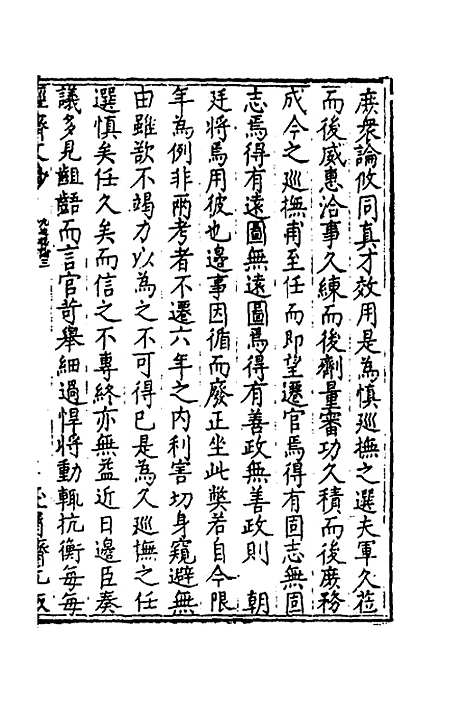 庶衆論攸同真才效用是為慎廵撫之選夫軍久莅
而後威惠洽事久練而後劑量審功久積而後庶務
成今之廵撫甫至任而即望遷官焉得有固志無固
志焉得有遠圖無遠圖焉得有善政無善政則 朝
廷將焉用彼也邉事因循而廢正坐此獘若自今限
年為例非兩考者不遷六年之内利害切身窺避無
由雖欲不竭力以為之不可得已是為久廵撫之任
選慎矣任久矣而信之不專終亦無益近日邉臣奏
議多見齟齬而言官苛舉細過悍將動輒抗衡每每